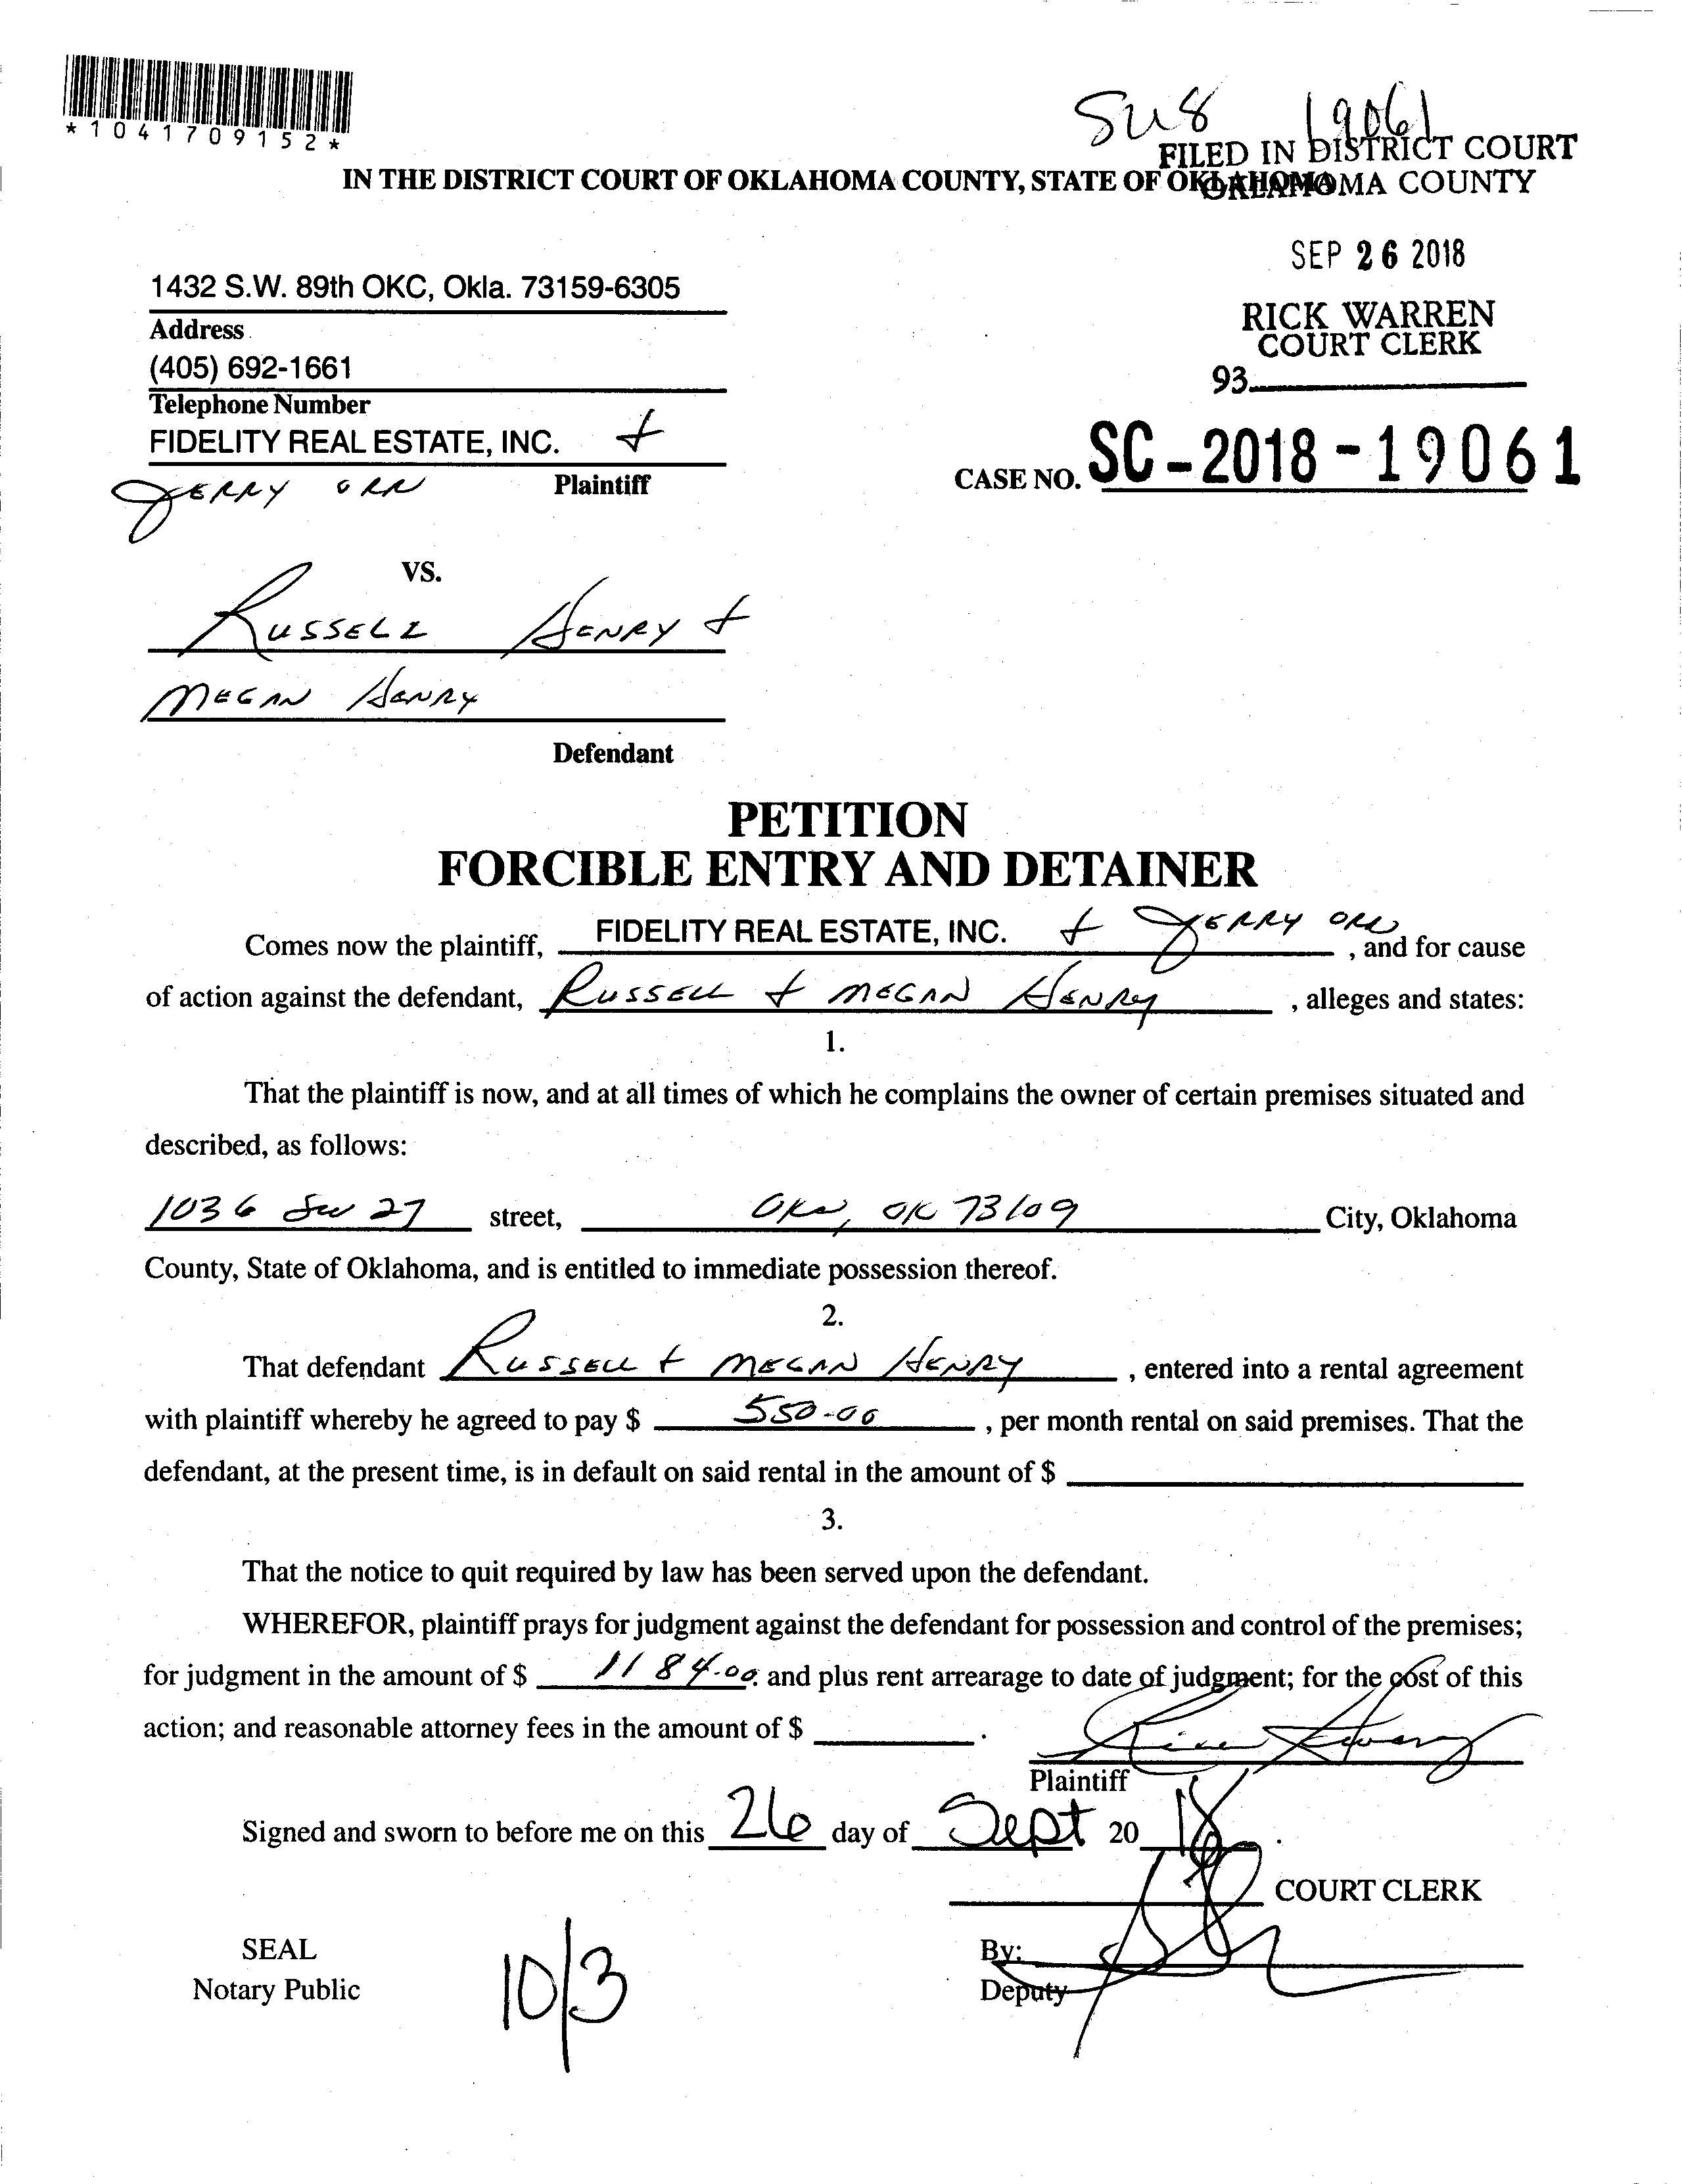 *1041709152*
19061
FILED IN DISTRICT COURT
OKLAHOMA COUNTY
IN THE DISTRICT COURT OF OKLAHOMA COUNTY, STATE OF OKLAHOMA
SEP 26 2018
1432 S.W. 89th OKC, Okla. 73159-6305
RICK WARREN
Address
COURT CLERK
(405) 692-1661
93
Telephone Number
FIDELITY REAL ESTATE, INC. +
CASE NO. SC-2018-19061
JERRY ORR Plaintiff
VS.
RUSSELL HENRY +
MEGAN HENRY
Defendant
PETITION
FORCIBLE ENTRY AND DETAINER
Comes now the plaintiff, FIDELITY REAL ESTATE, INC. + JERRY ORR, and for cause
of action against the defendant, RUSSELL + MEGAN HENRY, alleges and states:
1.
That the plaintiff is now, and at all times of which he complains the owner of certain premises situated and
described, as follows:
1036 SW 27 street, OKC, OK 73109 City, Oklahoma
County, State of Oklahoma, and is entitled to immediate possession thereof.
2.
That defendant RUSSELL + MEGAN HENRY, entered into a rental agreement
with plaintiff whereby he agreed to pay $ 550.00, per month rental on said premises. That the
defendant, at the present time, is in default on said rental in the amount of $
3.
That the notice to quit required by law has been served upon the defendant.
WHEREFOR, plaintiff prays for judgment against the defendant for possession and control of the premises;
for judgment in the amount of $ 1184.00. and plus rent arrearage to date of judgment; for the cost of this
action; and reasonable attorney fees in the amount of $ .
Plaintiff
Signed and sworn to before me on this 26 day of Sept 2018.
COURT CLERK
SEAL
By:
Notary Public
Deputy
10/3